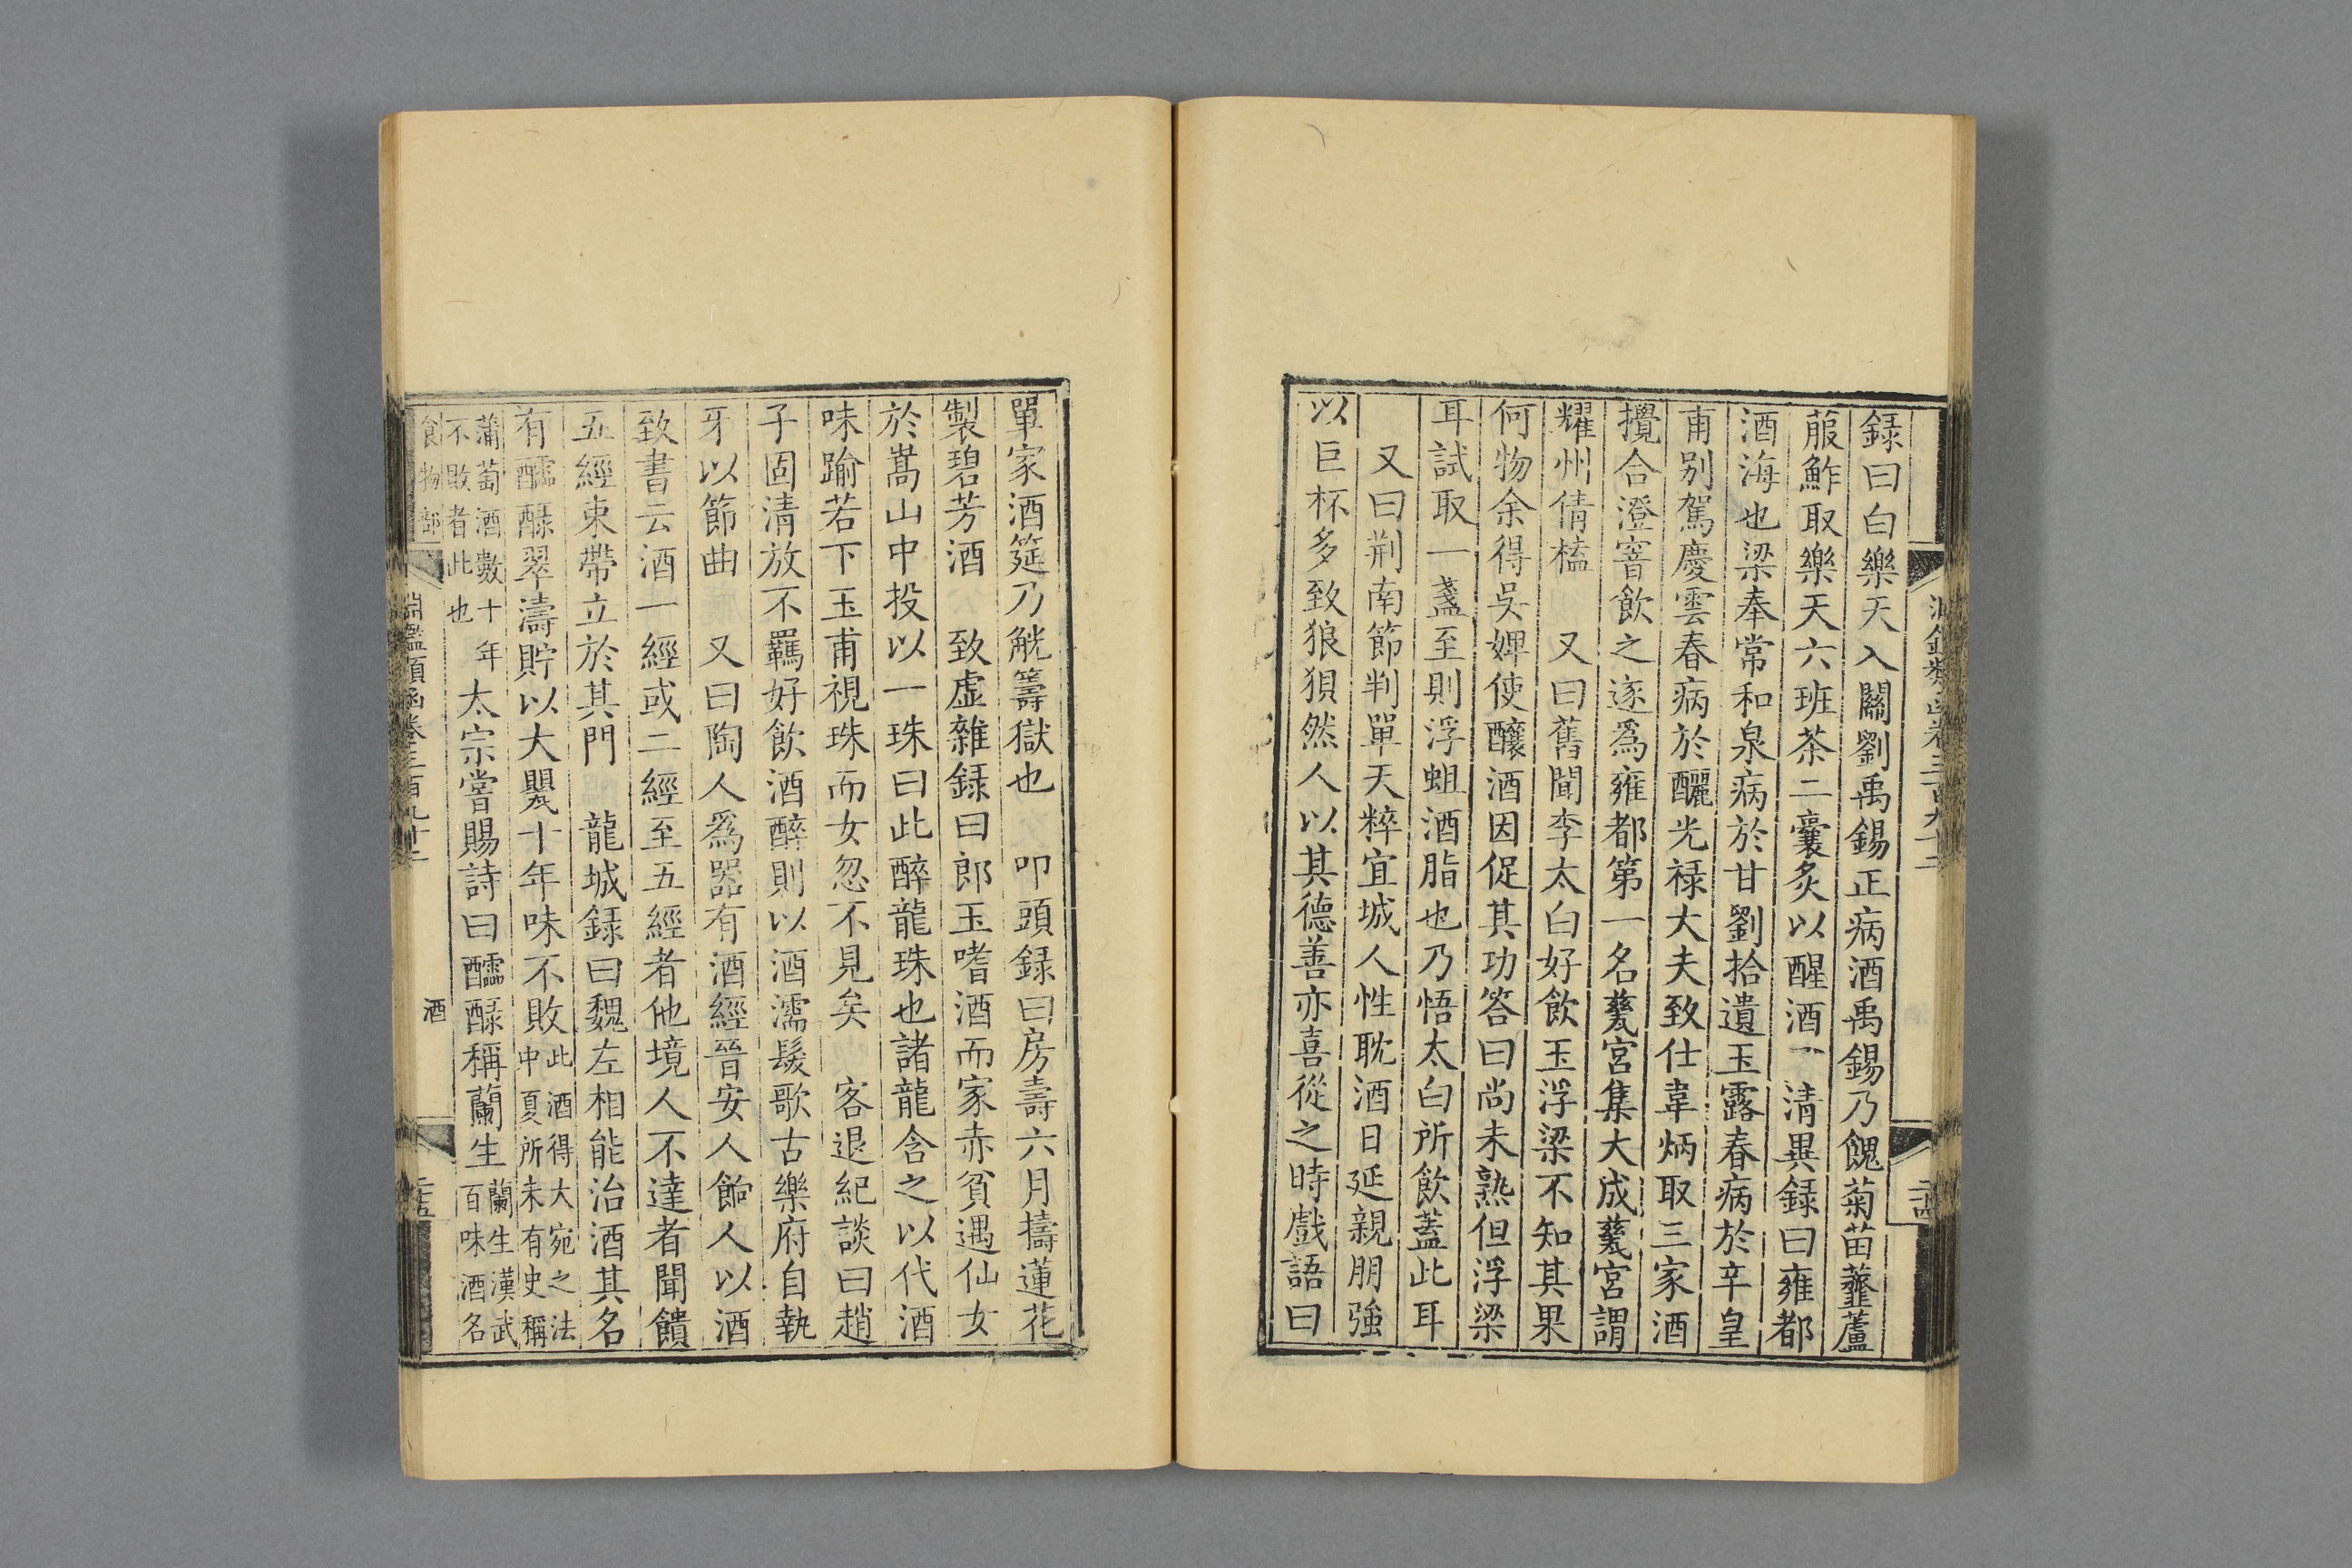 錄曰白樂天入關劉禹錫正病酒禹錫乃餽菊苗虀蘆
菔鮓取樂天六班茶二囊炙以醒酒 清異錄曰雍都
酒海也梁奉常和泉病於甘劉拾遺玉露春病於辛皇
甫別駕慶雲春病於釃光祿大夫致仕韋炳取三家酒
攪合澄窨飲之遂爲雍都第一名甆宮集大成甆宮謂
耀州倩榼 又曰舊聞李太白好飲玉浮梁不知其果
何物余得吳婢使釀酒因促其功答曰尚未熟但浮梁
耳試取一盞至則浮蛆酒脂也乃悟太白所飲蓋此耳
又曰荆南節判單天粹宜城人性耽酒日延親朋強
以巨杯多致狼狽然人以其德善亦喜從之時戲語曰
單家酒筵乃觥籌獄也 叩頭錄曰房壽六月擣蓮花
製碧芳酒 致虛雜錄曰郎玉嗜酒而家赤貧遇仙女
於嵩山中投以一珠曰此醉龍珠也諸龍含之以代酒
味踰若下玉甫視珠而女忽不見矣 客退紀談曰趙
子固清放不羈好飲酒醉則以酒濡髮歌古樂府自執
牙以節曲 又曰陶人爲器有酒經晉安人餉人以酒
致書云酒一經或二經至五經者他境人不達者聞饋
五經束帶立於其門 龍城錄曰魏左相能治酒其名
有醽醁翠濤貯以大罌十年味不敗此酒得大宛之法中夏所未有史稱
蒲萄酒數十年不敗者此也太宗嘗賜詩曰醽醁稱蘭生蘭生漢武百味酒名
食物部 淵鑑類函卷三百九十二 酒 二十五